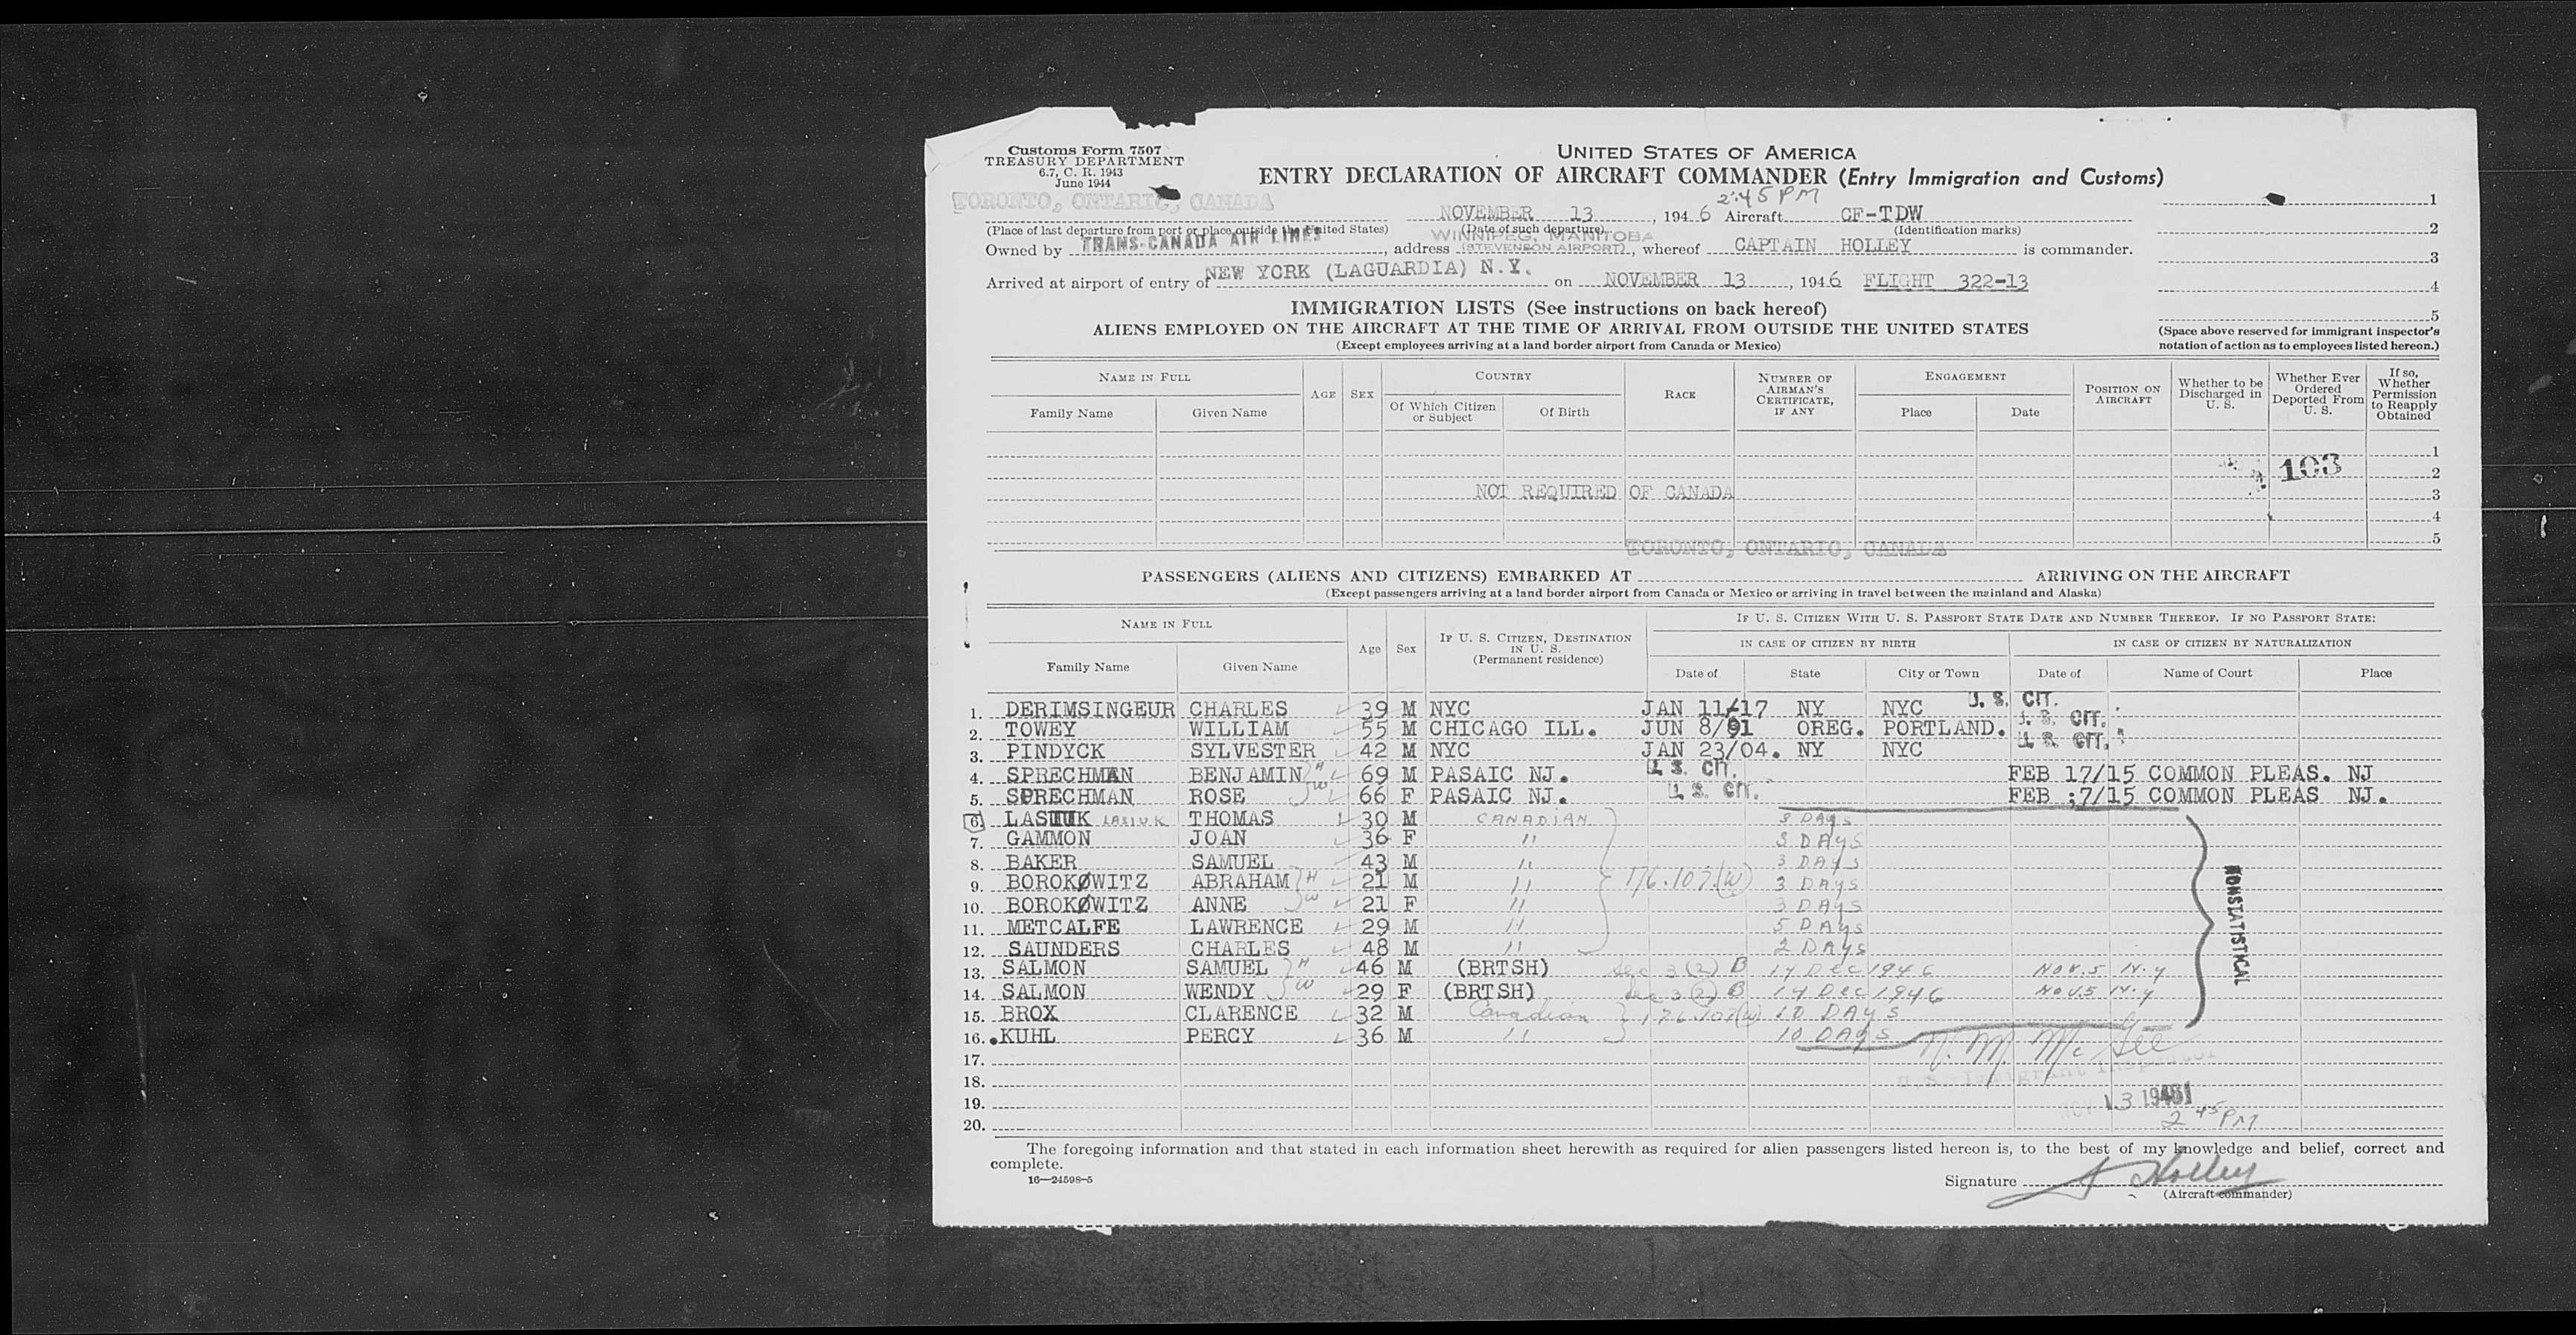 Customs Form 7507
TREASURY DEPARTMENT
6.7, C. R. 1943
June 1944
UNITED STATES OF AMERICA
ENTRY DECLARATION OF AIRCRAFT COMMANDER (Entry Immigration and Customs)
2:45 PM
TORONTO, ONTARIO, CANADA NOVEMBER 13, 1946 Aircraft CF-TDW
(Place of last departure from port or place outside the United States) (Date of such departure) (Identification marks)
WINNIPEG, MANITOBA
Owned by TRANS-CANADA AIR LINES, address (STEVENSON AIRPORT), whereof CAPTAIN HOLLEY is commander.
Arrived at airport of entry of NEW YORK (LAGUARDIA) N.Y. on NOVEMBER 13, 1946 FLIGHT 322-13
1
2
3
4
5
(Space above reserved for immigrant inspector's
notation of action as to employees listed hereon.)
IMMIGRATION LISTS (See instructions on back hereof)
ALIENS EMPLOYED ON THE AIRCRAFT AT THE TIME OF ARRIVAL FROM OUTSIDE THE UNITED STATES
(Except employees arriving at a land border airport from Canada or Mexico)
NAME IN FULL
Family Name Given Name
AGE SEX
COUNTRY
Of Which Citizen or Subject Of Birth
RACE
NUMBER OF AIRMAN'S CERTIFICATE, IF ANY
ENGAGEMENT
Place Date
POSITION ON AIRCRAFT
Whether to be Discharged in U. S.
Whether Ever Ordered Deported From U. S.
If so, Whether Permission to Reapply Obtained
1
103 2
NOT REQUIRED OF CANADA 3
4
5
TORONTO, ONTARIO, CANADA
PASSENGERS (ALIENS AND CITIZENS) EMBARKED AT ARRIVING ON THE AIRCRAFT
(Except passengers arriving at a land border airport from Canada or Mexico or arriving in travel between the mainland and Alaska)
NAME IN FULL
Family Name Given Name
Age Sex
IF U. S. CITIZEN, DESTINATION IN U. S. (Permanent residence)
IF U. S. CITIZEN WITH U. S. PASSPORT STATE DATE AND NUMBER THEREOF. IF NO PASSPORT STATE:
IN CASE OF CITIZEN BY BIRTH IN CASE OF CITIZEN BY NATURALIZATION
Date of State City or Town Date of Name of Court Place
1. DERIMSINGEUR CHARLES 39 M NYC JAN 11/17 NY NYC U. S. CIT.
2. TOWEY WILLIAM 55 M CHICAGO ILL. JUN 8/91 OREG. PORTLAND. U. S. CIT.
3. PINDYCK SYLVESTER 42 M NYC JAN 23/04. NY NYC U. S. CIT.
4. SPRECHMAN BENJAMIN H 69 M PASAIC NJ. U. S. CIT. FEB 17/15 COMMON PLEAS. NJ
5. SPRECHMAN ROSE W 66 F PASAIC NJ. U. S. CIT. FEB ;7/15 COMMON PLEAS NJ.
6. LASIUK LASIUK THOMAS 30 M CANADIAN 3 DAYS
7. GAMMON JOAN 36 F " 3 DAYS
8. BAKER SAMUEL 43 M " 3 DAYS
9. BOROKOWITZ ABRAHAM H 21 M " 176.107(W) 3 DAYS
10. BOROKOWITZ ANNE W 21 F " 3 DAYS
11. METCALFE LAWRENCE 29 M " 5 DAYS
12. SAUNDERS CHARLES 48 M " 2 DAYS
13. SALMON SAMUEL H 46 M (BRTSH) Sec 3 (2) B 14 Dec 1946 NOV.5 N.Y
14. SALMON WENDY W 29 F (BRTSH) Sec 3 (2) B 14 Dec 1946 NOV.5 N.Y
15. BROX CLARENCE 32 M Canadian 176.107(W) 10 DAYS
16. KUHL PERCY 36 M " 10 DAYS
NONSTATISTICAL
N. M. McGee
17.
U.S. Immigrant Inspector
18.
19.
NOV 13 1946
2 45 PM
20.
The foregoing information and that stated in each information sheet herewith as required for alien passengers listed hereon is, to the best of my knowledge and belief, correct and
complete.
16—24598-5
Signature Holley
(Aircraft commander)